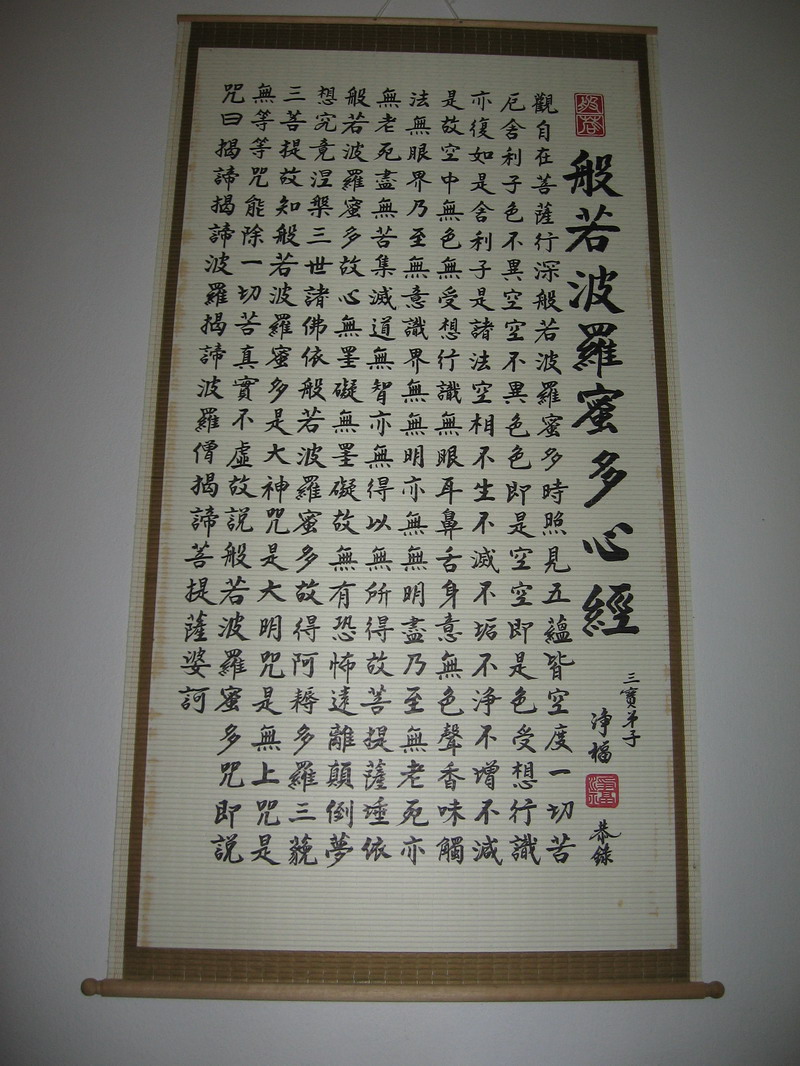 般若
般若波羅蜜多心經
三寶弟子
淨福
恭錄
觀自在菩薩行深般若波羅蜜多時照見五蘊皆空度一切苦
厄舍利子色不異空空不異色色即是空空即是色受想行識
亦復如是舍利子是諸法空相不生不滅不垢不淨不增不減
是故空中無色無受想行識無眼耳鼻舌身意無色聲香味觸
法無眼界乃至無意識界無無明亦無無明盡乃至無老死亦
無老死盡無苦集滅道無智亦無得以無所得故菩提薩埵依
般若波羅蜜多故心無罣礙無罣礙故無有恐怖遠離顛倒夢
想究竟涅槃三世諸佛依般若波羅蜜多故得阿耨多羅三藐
三菩提故知般若波羅蜜多是大神咒是大明咒是無上咒是
無等等咒能除一切苦真實不虛故說般若波羅蜜多咒即說
咒曰揭諦揭諦波羅揭諦波羅僧揭諦菩提薩婆訶